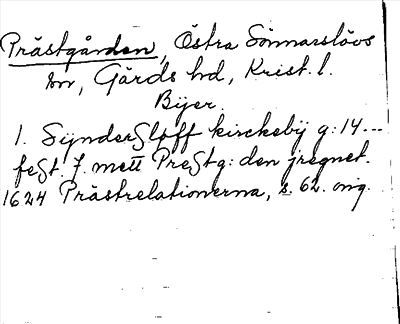 Prästgården, Östra Sönnarslövs
sn, Gärds hd, Krist. l.
Byer.
1. SynderSlöff kirckebÿ g: 14...
feSt. 7. mett PreStg: den jregnet.
1624 Prästrelationerna, s. 62. orig.